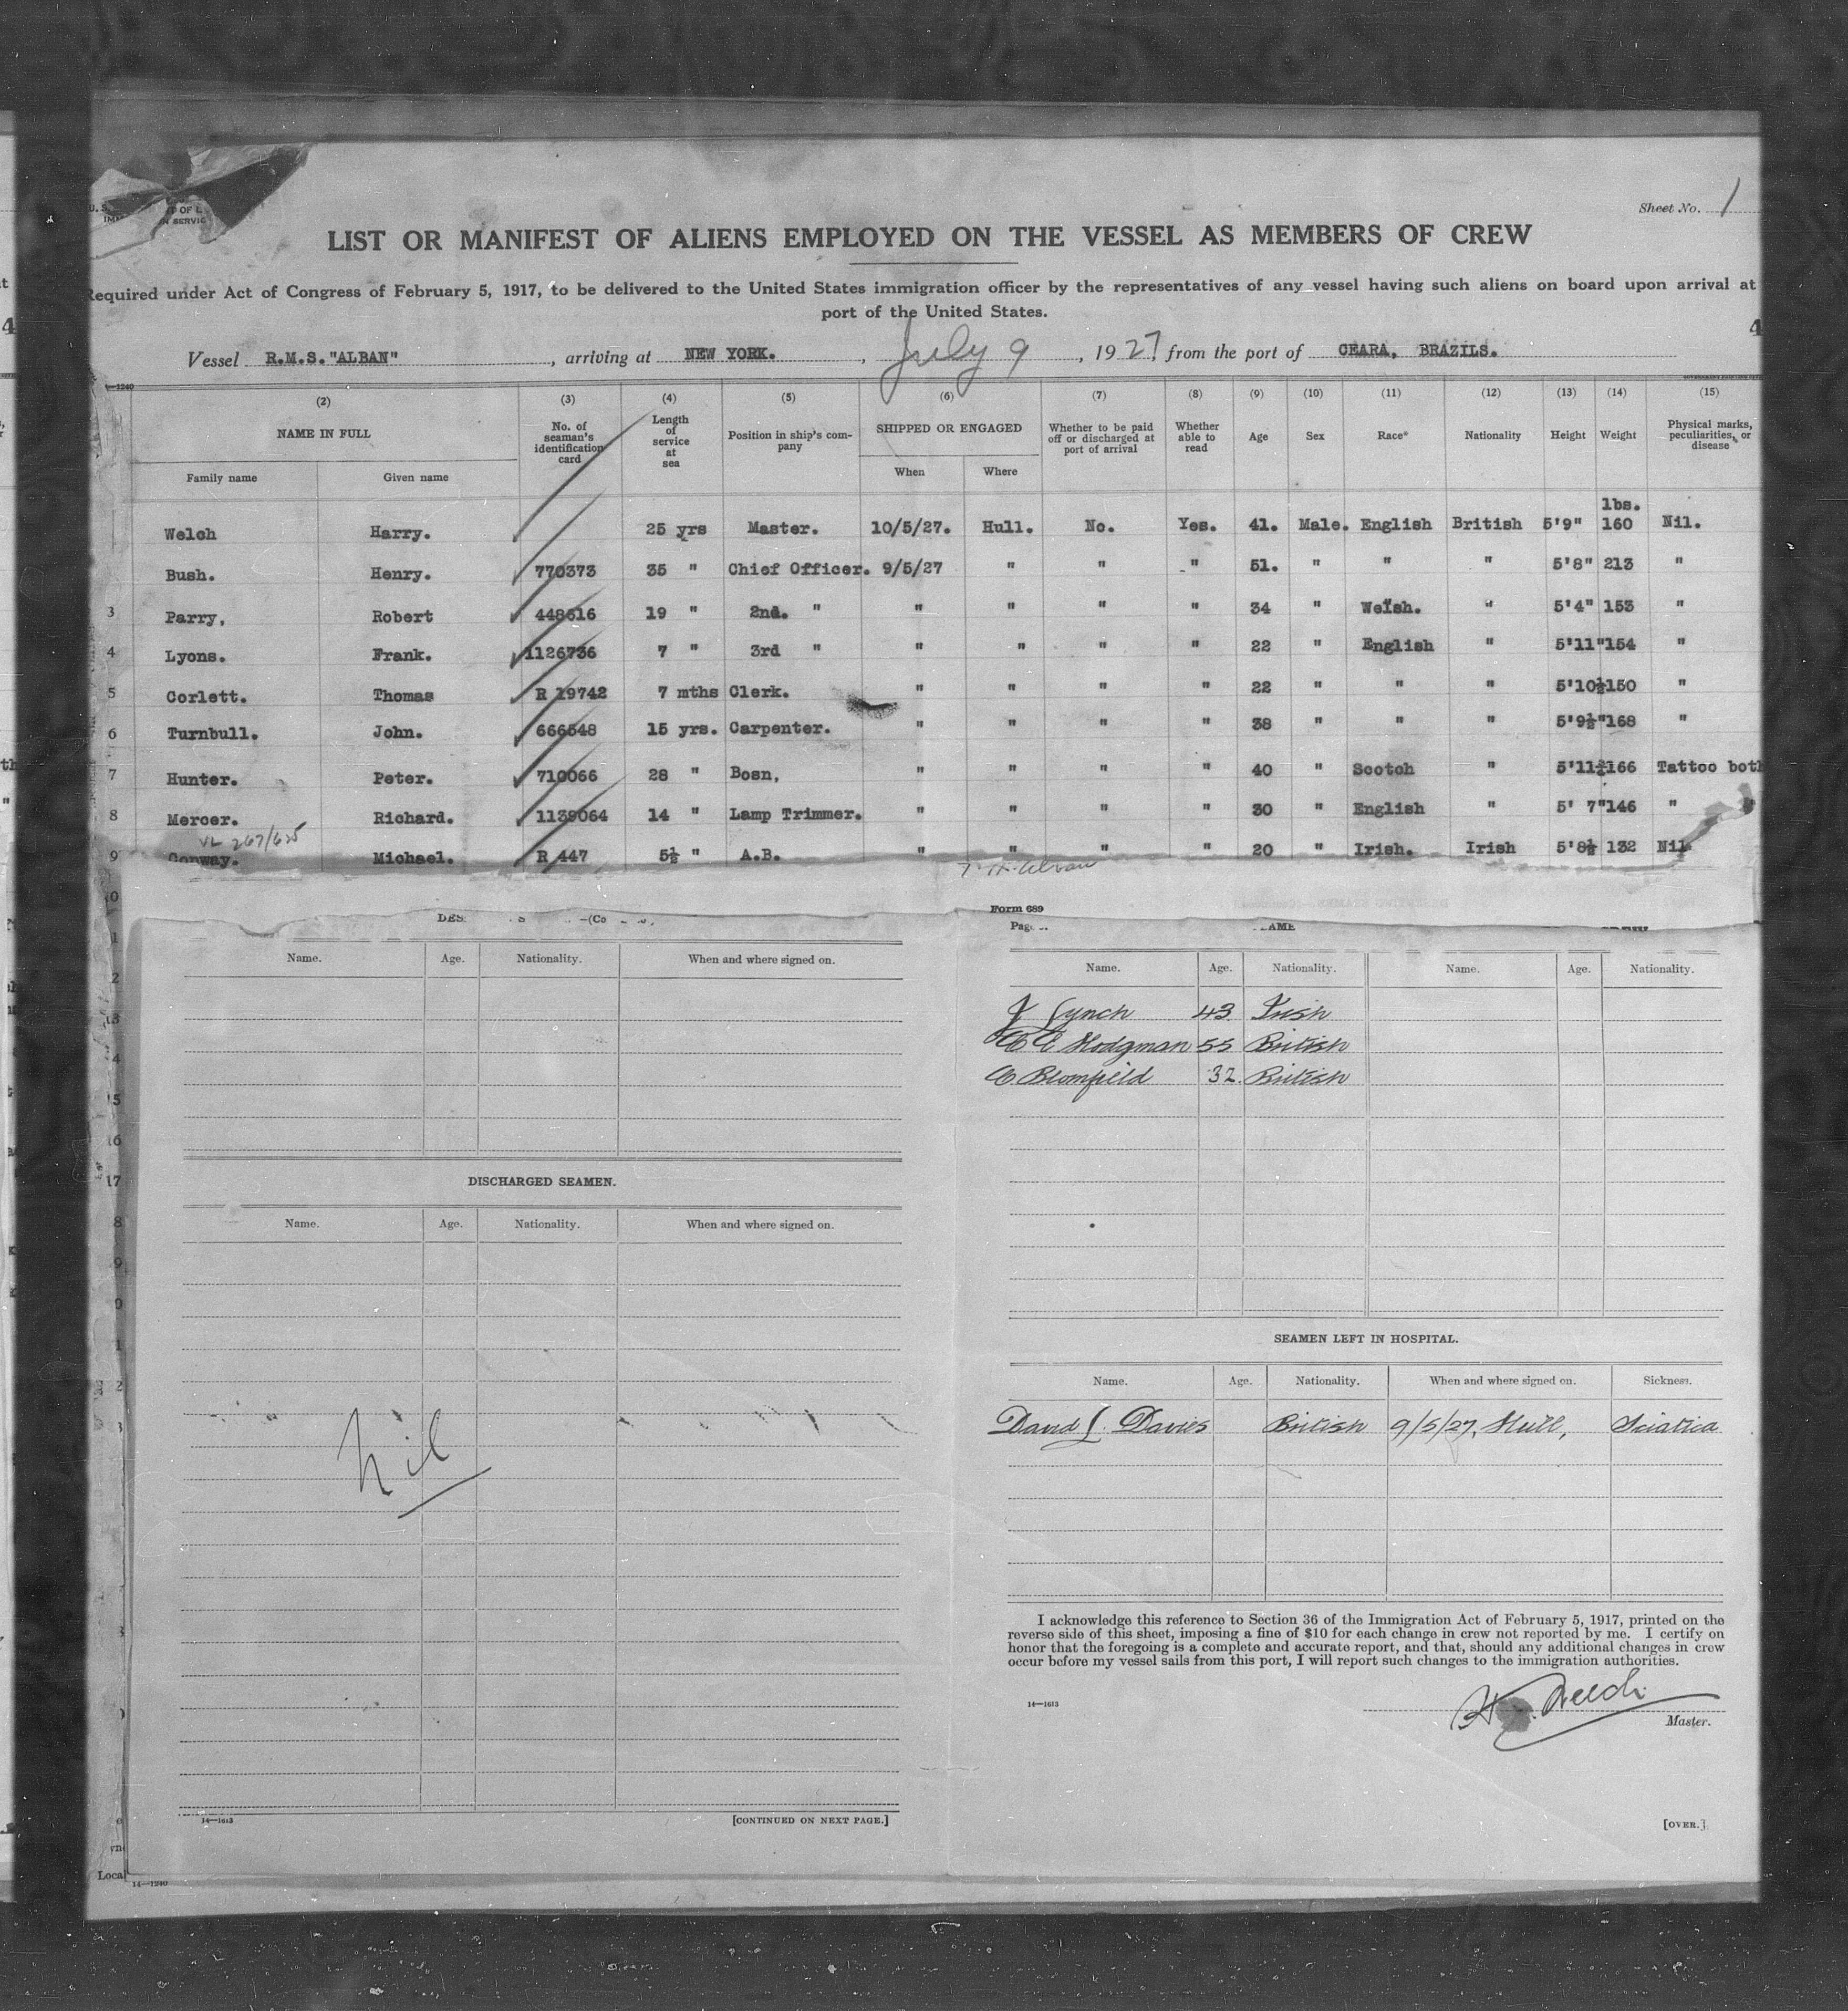 Sheet No. 1
LIST OR MANIFEST OF ALIENS EMPLOYED ON THE VESSEL AS MEMBERS OF CREW
Required under Act of Congress of February 5, 1917, to be delivered to the United States immigration officer by the representatives of any vessel having such aliens on board upon arrival at
port of the United States.
Vessel R.M.S."ALBAN" , arriving at NEW YORK. , July 9 , 1927, from the port of CEARA, BRAZILS.
(2) (3) (4) (5) (6) (7) (8) (9) (10) (11) (12) (13) (14) (15)
NAME IN FULL No. of seaman's identification card Length of service at sea Position in ship's company SHIPPED OR ENGAGED Whether to be paid off or discharged at port of arrival Whether able to read Age Sex Race* Nationality Height Weight Physical marks, peculiarities, or disease
Family name Given name When Where
lbs.
Welch Harry. 25 yrs Master. 10/5/27. Hull. No. Yes. 41. Male. English British 5'9" 160 Nil.
Bush. Henry. 770373 35 " Chief Officer. 9/5/27 " " " 51. " " " 5'8" 213 "
3 Parry, Robert 448616 19 " 2nd. " " " " " 34 " Welsh. " 5'4" 153 "
4 Lyons. Frank. 1126736 7 " 3rd " " " " " 22 " English " 5'11" 154 "
5 Corlett. Thomas R 19742 7 mths Clerk. " " " " 22 " " " 5'10½ 150 "
6 Turnbull. John. 666548 15 yrs. Carpenter. " " " " 38 " " " 5'9½" 168 "
7 Hunter. Peter. 710066 28 " Bosn, " " " " 40 " Scotch " 5'11½ 166 Tattoo both
8 Mercer. Richard. 1139064 14 " Lamp Trimmer. " " " " 30 " English " 5' 7" 146 "
9 Conway. Michael. R 447 5½ " A.B. " " " " 20 " Irish. Irish 5'8½ 132 Nil
Form 689
Name. Age. Nationality. When and where signed on.
DISCHARGED SEAMEN.
Name. Age. Nationality. When and where signed on.
Nil
14—1613 [CONTINUED ON NEXT PAGE.]
Name. Age. Nationality. Name. Age. Nationality.
J Lynch 43 Irish
C Hodgman 55 British
C Blomfield 32 British
SEAMEN LEFT IN HOSPITAL.
Name. Age. Nationality. When and where signed on. Sickness.
David L. Davies British 9/5/27, Hull, Sciatica
I acknowledge this reference to Section 36 of the Immigration Act of February 5, 1917, printed on the
reverse side of this sheet, imposing a fine of $10 for each change in crew not reported by me. I certify on
honor that the foregoing is a complete and accurate report, and that, should any additional changes in crew
occur before my vessel sails from this port, I will report such changes to the immigration authorities.
14—1613
Master.
[OVER.]
Local
14—1240